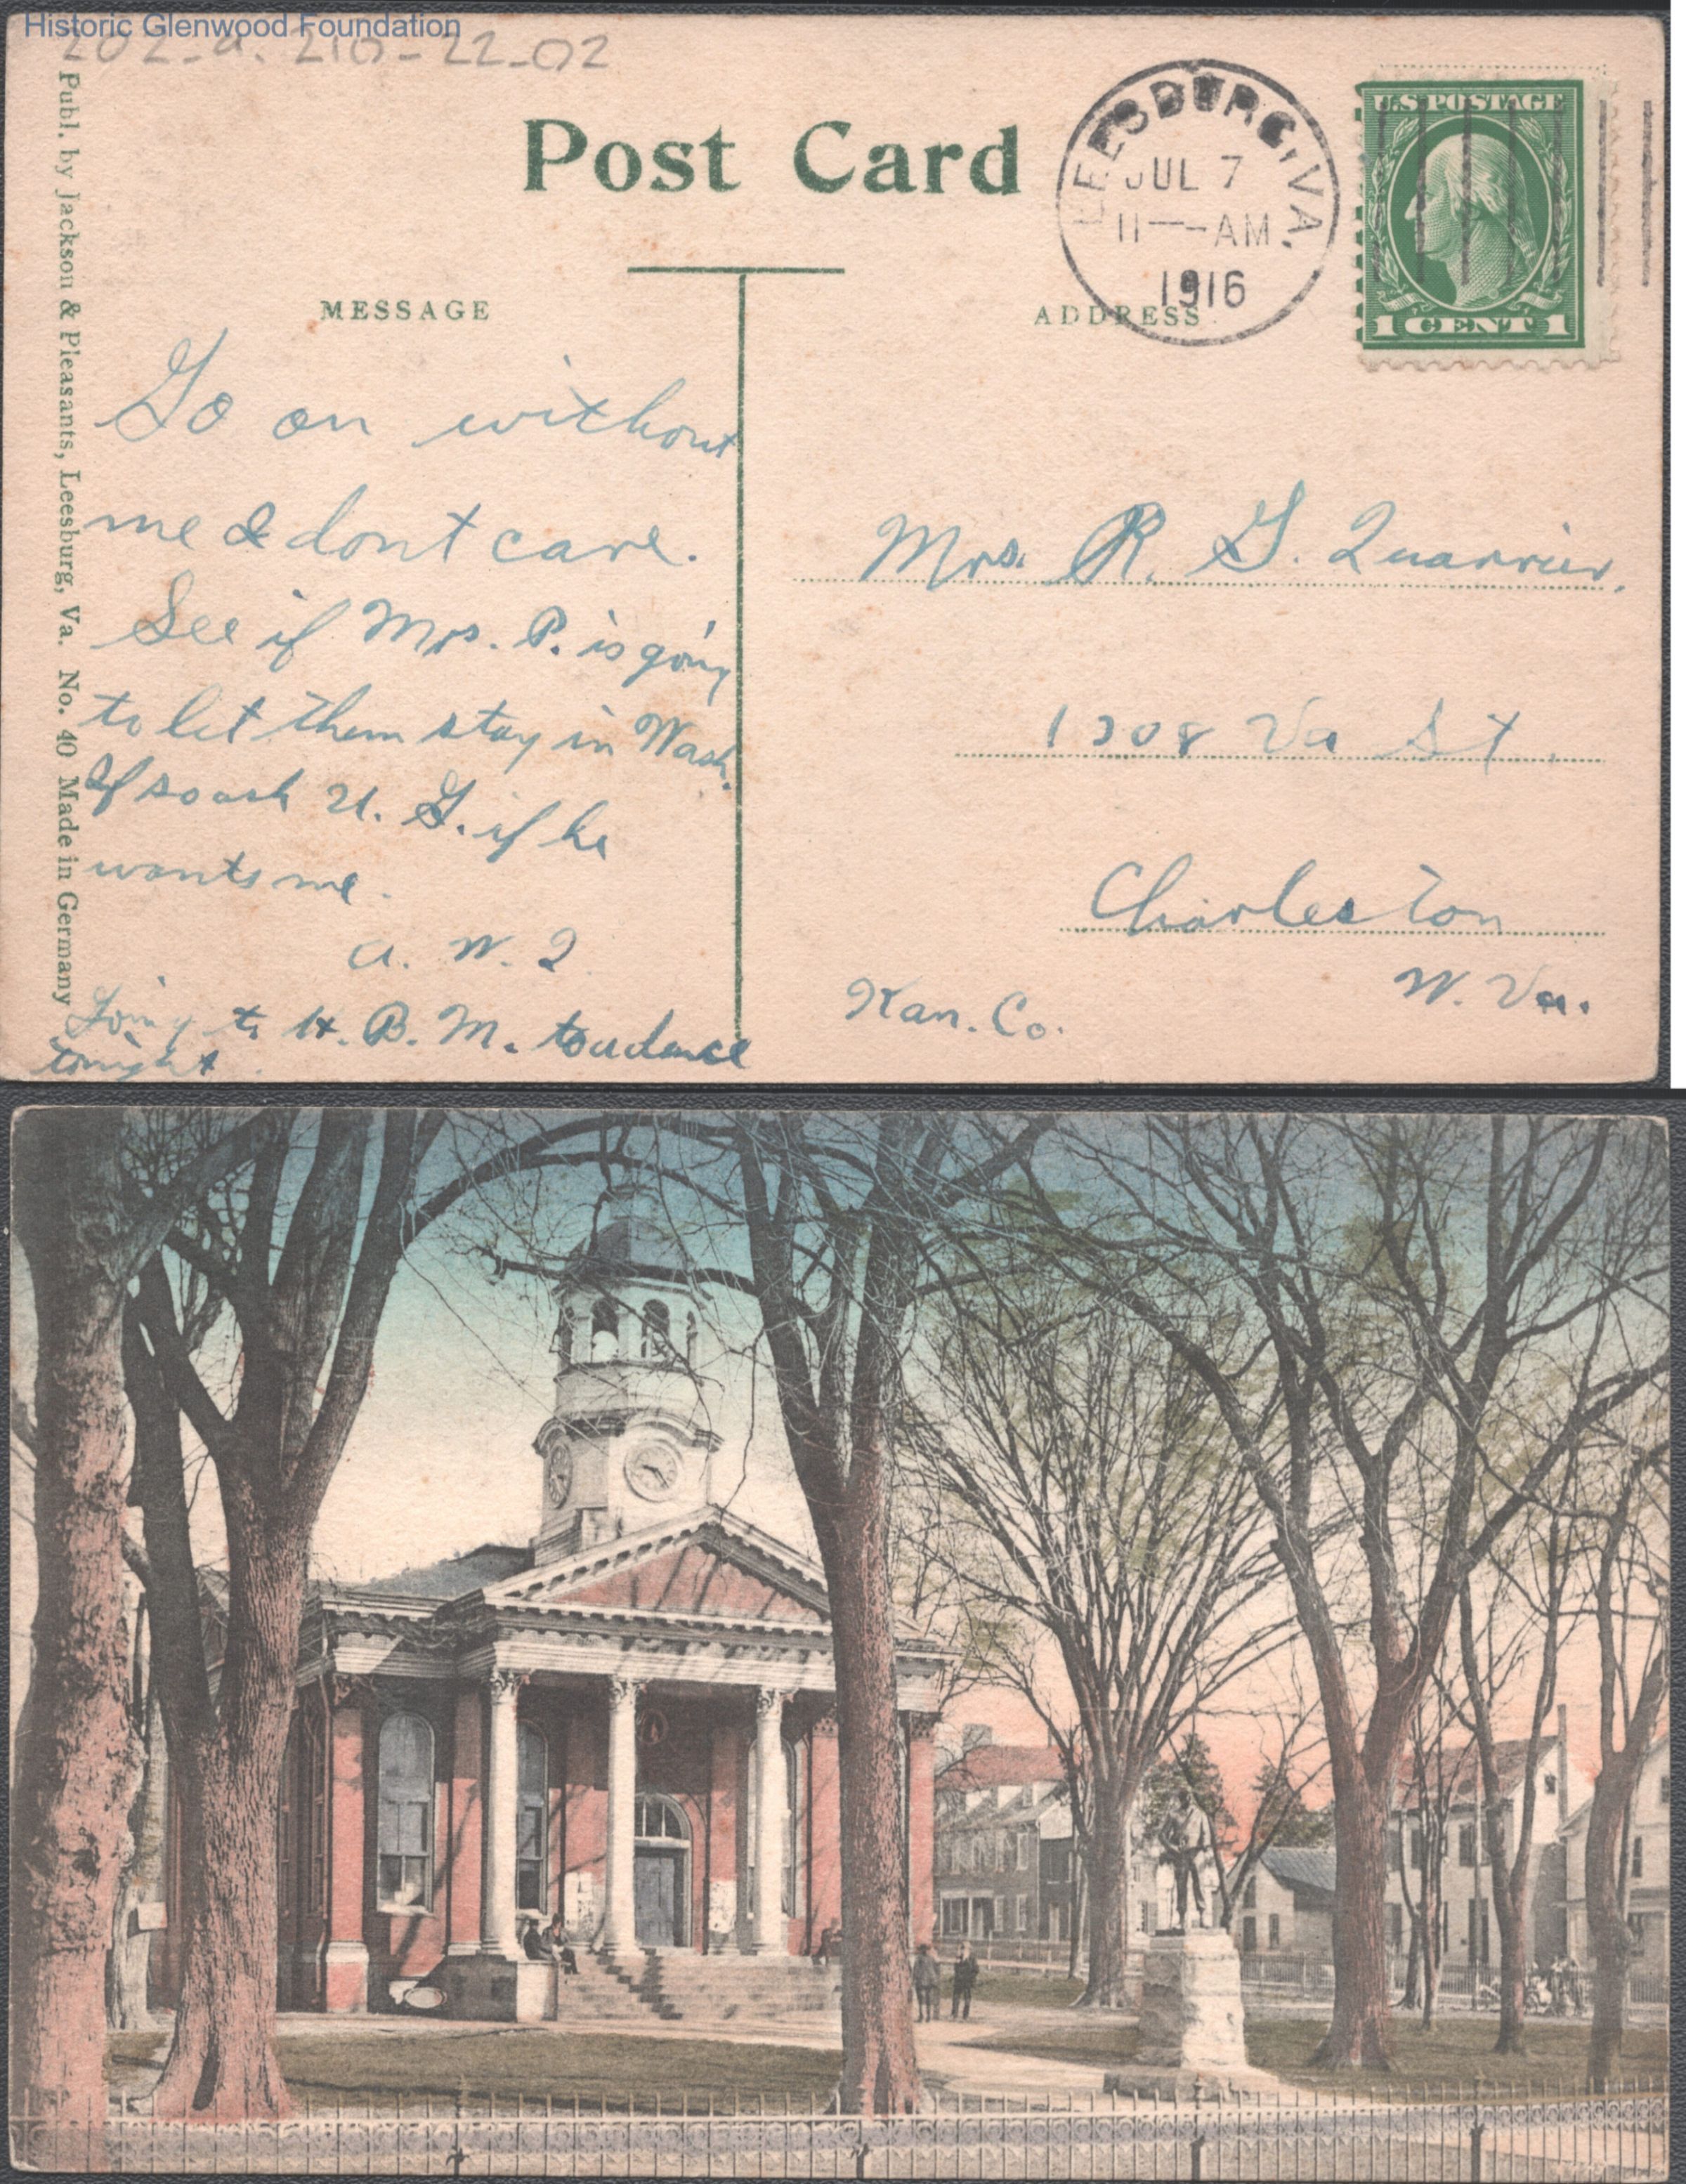 Historic Glenwood Foundation
202-a. 210-22-02
Post Card
LEESBURG, VA.
JUL 7
11—AM
1916
U.S. POSTAGE
1 CENT 1
MESSAGE
ADDRESS
Go on without
me & dont care.
See if Mrs. P. is going
to let them stay in Wash.
If so ask U. G. if he
wants me.
A. W. Q
Going to H. B. M. to a dance
tonight.
Mrs. R. G. Quarrier.
1308 Va St.
Charleston
W. Va.
Kan. Co.
Publ. by Jackson & Pleasants, Leesburg, Va. No. 40 Made in Germany